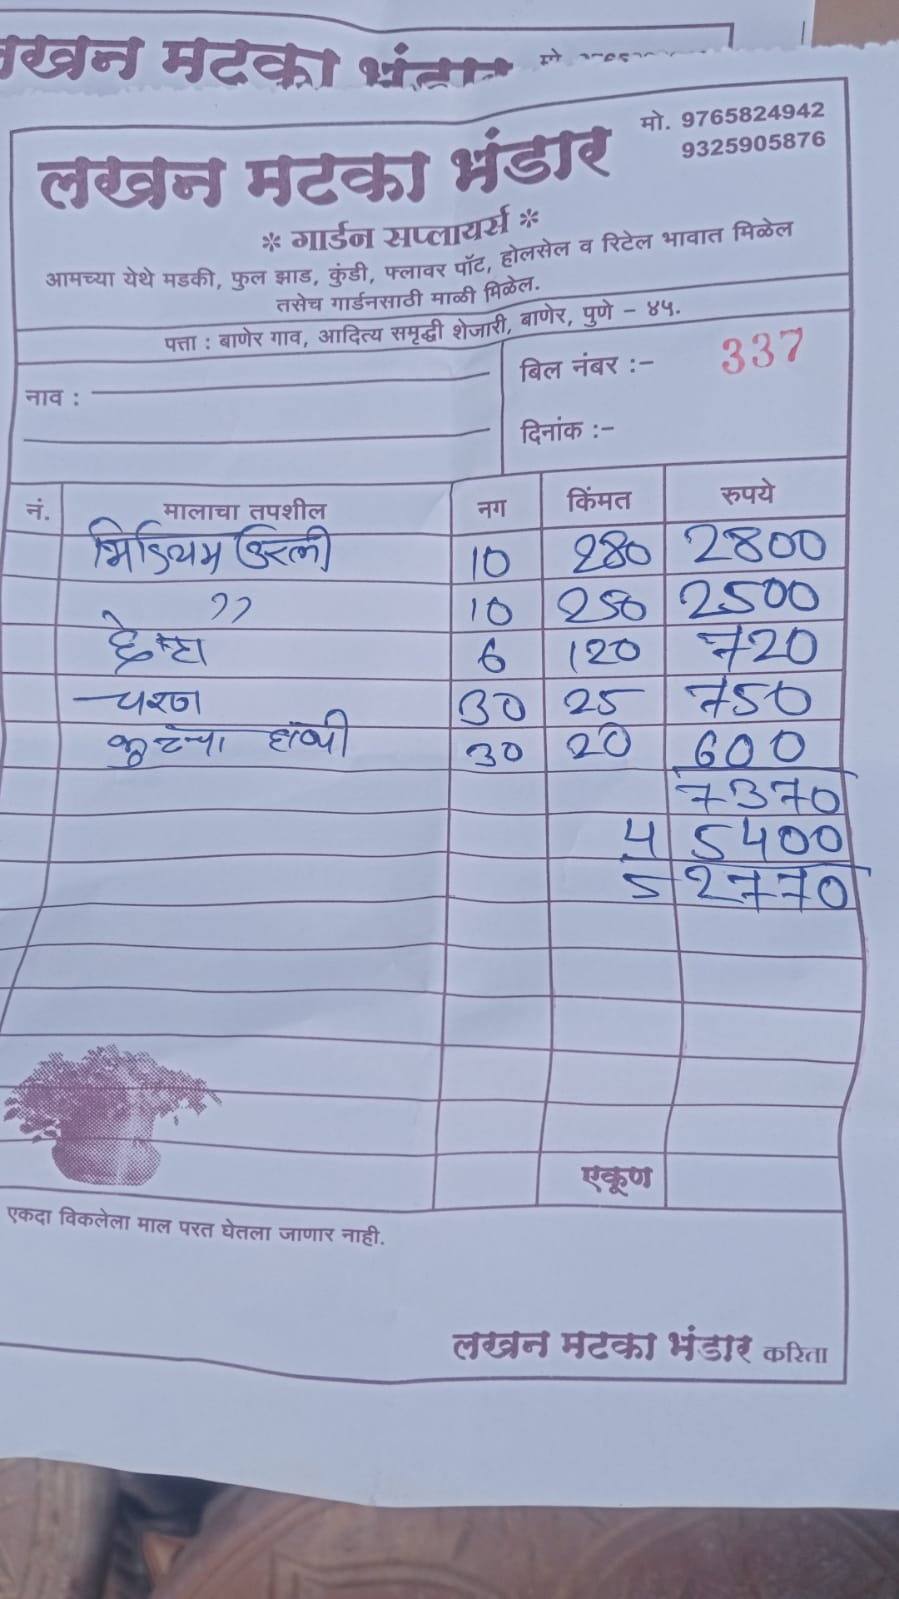 लखन मटका भंडार
लखन मटका भंडार
मो. 9765824942
9325905876
* गार्डन सप्लायर्स *
आमच्या येथे मडकी, फुल झाड, कुंडी, फ्लावर पॉट, होलसेल व रिटेल भावात मिळेल
तसेच गार्डनसाठी माळी मिळेल.
पत्ता : बाणेर गाव, आदित्य समृद्धी शेजारी, बाणेर, पुणे – ४५.
नाव :
बिल नंबर :- 337
दिनांक :-
नं. मालाचा तपशील नग किंमत रुपये
मिडियम उरली 10 280 2800
" 10 250 2500
6 120 720
30 25 750
30 20 600
7370
45400
52770
एकूण
एकदा विकलेला माल परत घेतला जाणार नाही.
लखन मटका भंडार करिता